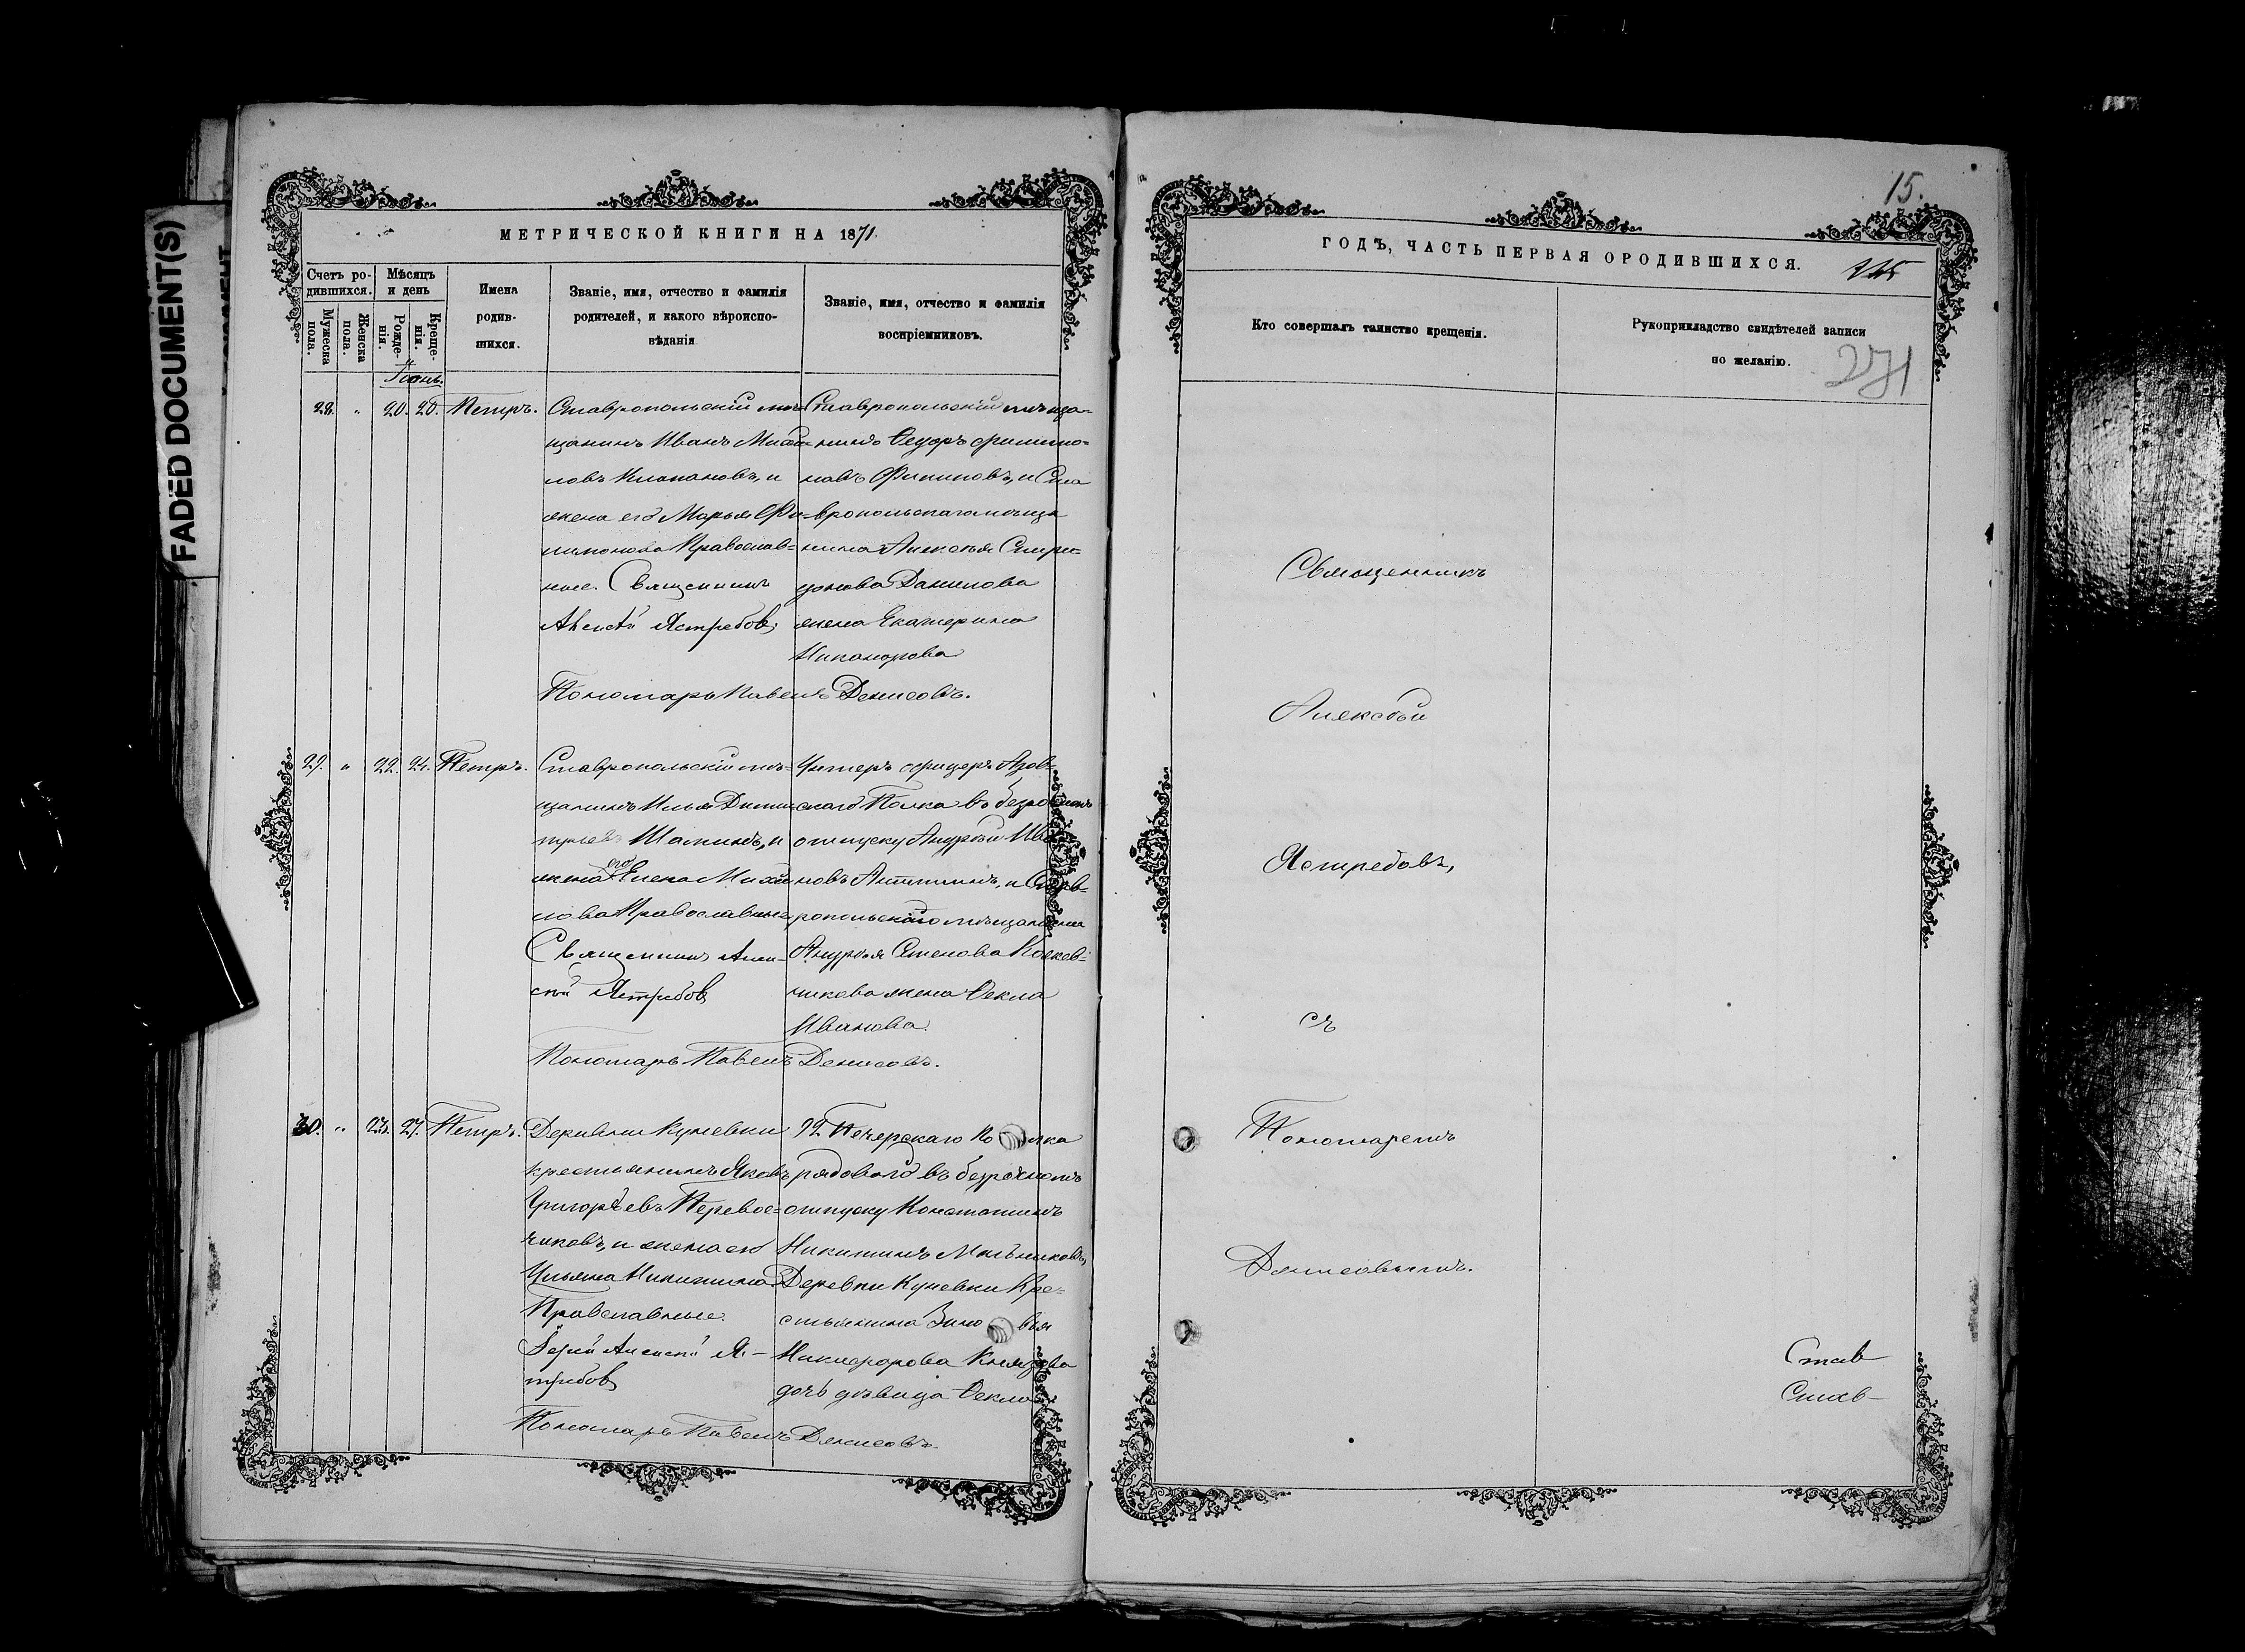 FADED DOCUMENT(S)
МЕТРИЧЕСКОЙ КНИГИ НА 1871.
Счетъ ро-
дившихся.
Мѣсяцъ
и день
Мужеска
пола.
Женска
пола.
Рожде-
нія.
Креще-
нія.
Имена
родив-
шихся.
Званіе, имя, отчество и фамилія
родителей, и какого вѣроиспо-
вѣданія
Званіе, имя, отчество и фамилія
воспріемниковъ.
Іюнь.
28. " 20. 20. Петръ.
Ставропольскій мѣ-
щанинъ Иванъ Михаи-
ловъ и
жена его Марья Фи-
липпова Православ-
ные. Священникъ
Алексѣй Ястребовъ
Ставропольскій мѣща-
нинъ Ѳедоръ Филиппо-
повъ и Ста
вропольскаго мѣща
нина Алексѣя Спири-
донова Данилова
жена Екатерина
Никанорова
Пономарь Павелъ Денисовъ.
29. " 22. 24. Петръ.
Ставропольскій мѣ-
щанинъ Илья Дими
тріевъ Шанинъ, и
жена его Елена Михаи
лова Православные
Священникъ Алек-
сѣй Ястребовъ
Унтеръ офицеръ Азов-
скаго Полка въ безсрочномъ
отпуску Андрей Ива
новъ и Став-
ропольскаго мѣщанина
Андрея Семенова
жена Ѳекла
Иванова.
Пономарь Павелъ Денисовъ.
30. " 23. 27. Петръ.
Деревни Кунеевки
крестьянинъ Яковъ
Григорьевъ Перевос-
чиковъ, и жена его
Ульяна Никитина
Православные.
Іерей Алексѣй Яс-
требовъ
92 Печерскаго Полка
рядовой въ безсрочномъ
отпуску Константинъ
Никитинъ Мельниковъ,
Деревни Кунеевки Кре-
стьянина Зиновья
Никифорова Князева
дочь дѣвица Ѳекла
Пономарь Павелъ Денисовъ.
15.
ГОДЪ, ЧАСТЬ ПЕРВАЯ ОРОДИВШИХСЯ.
271
Кто совершалъ таинство крещенія.
Рукоприкладство свидѣтелей записи
по желанію.
Священникъ
Алексѣй
Ястребовъ,
съ
Пономаремъ
Денисовымъ.
Став
Став-